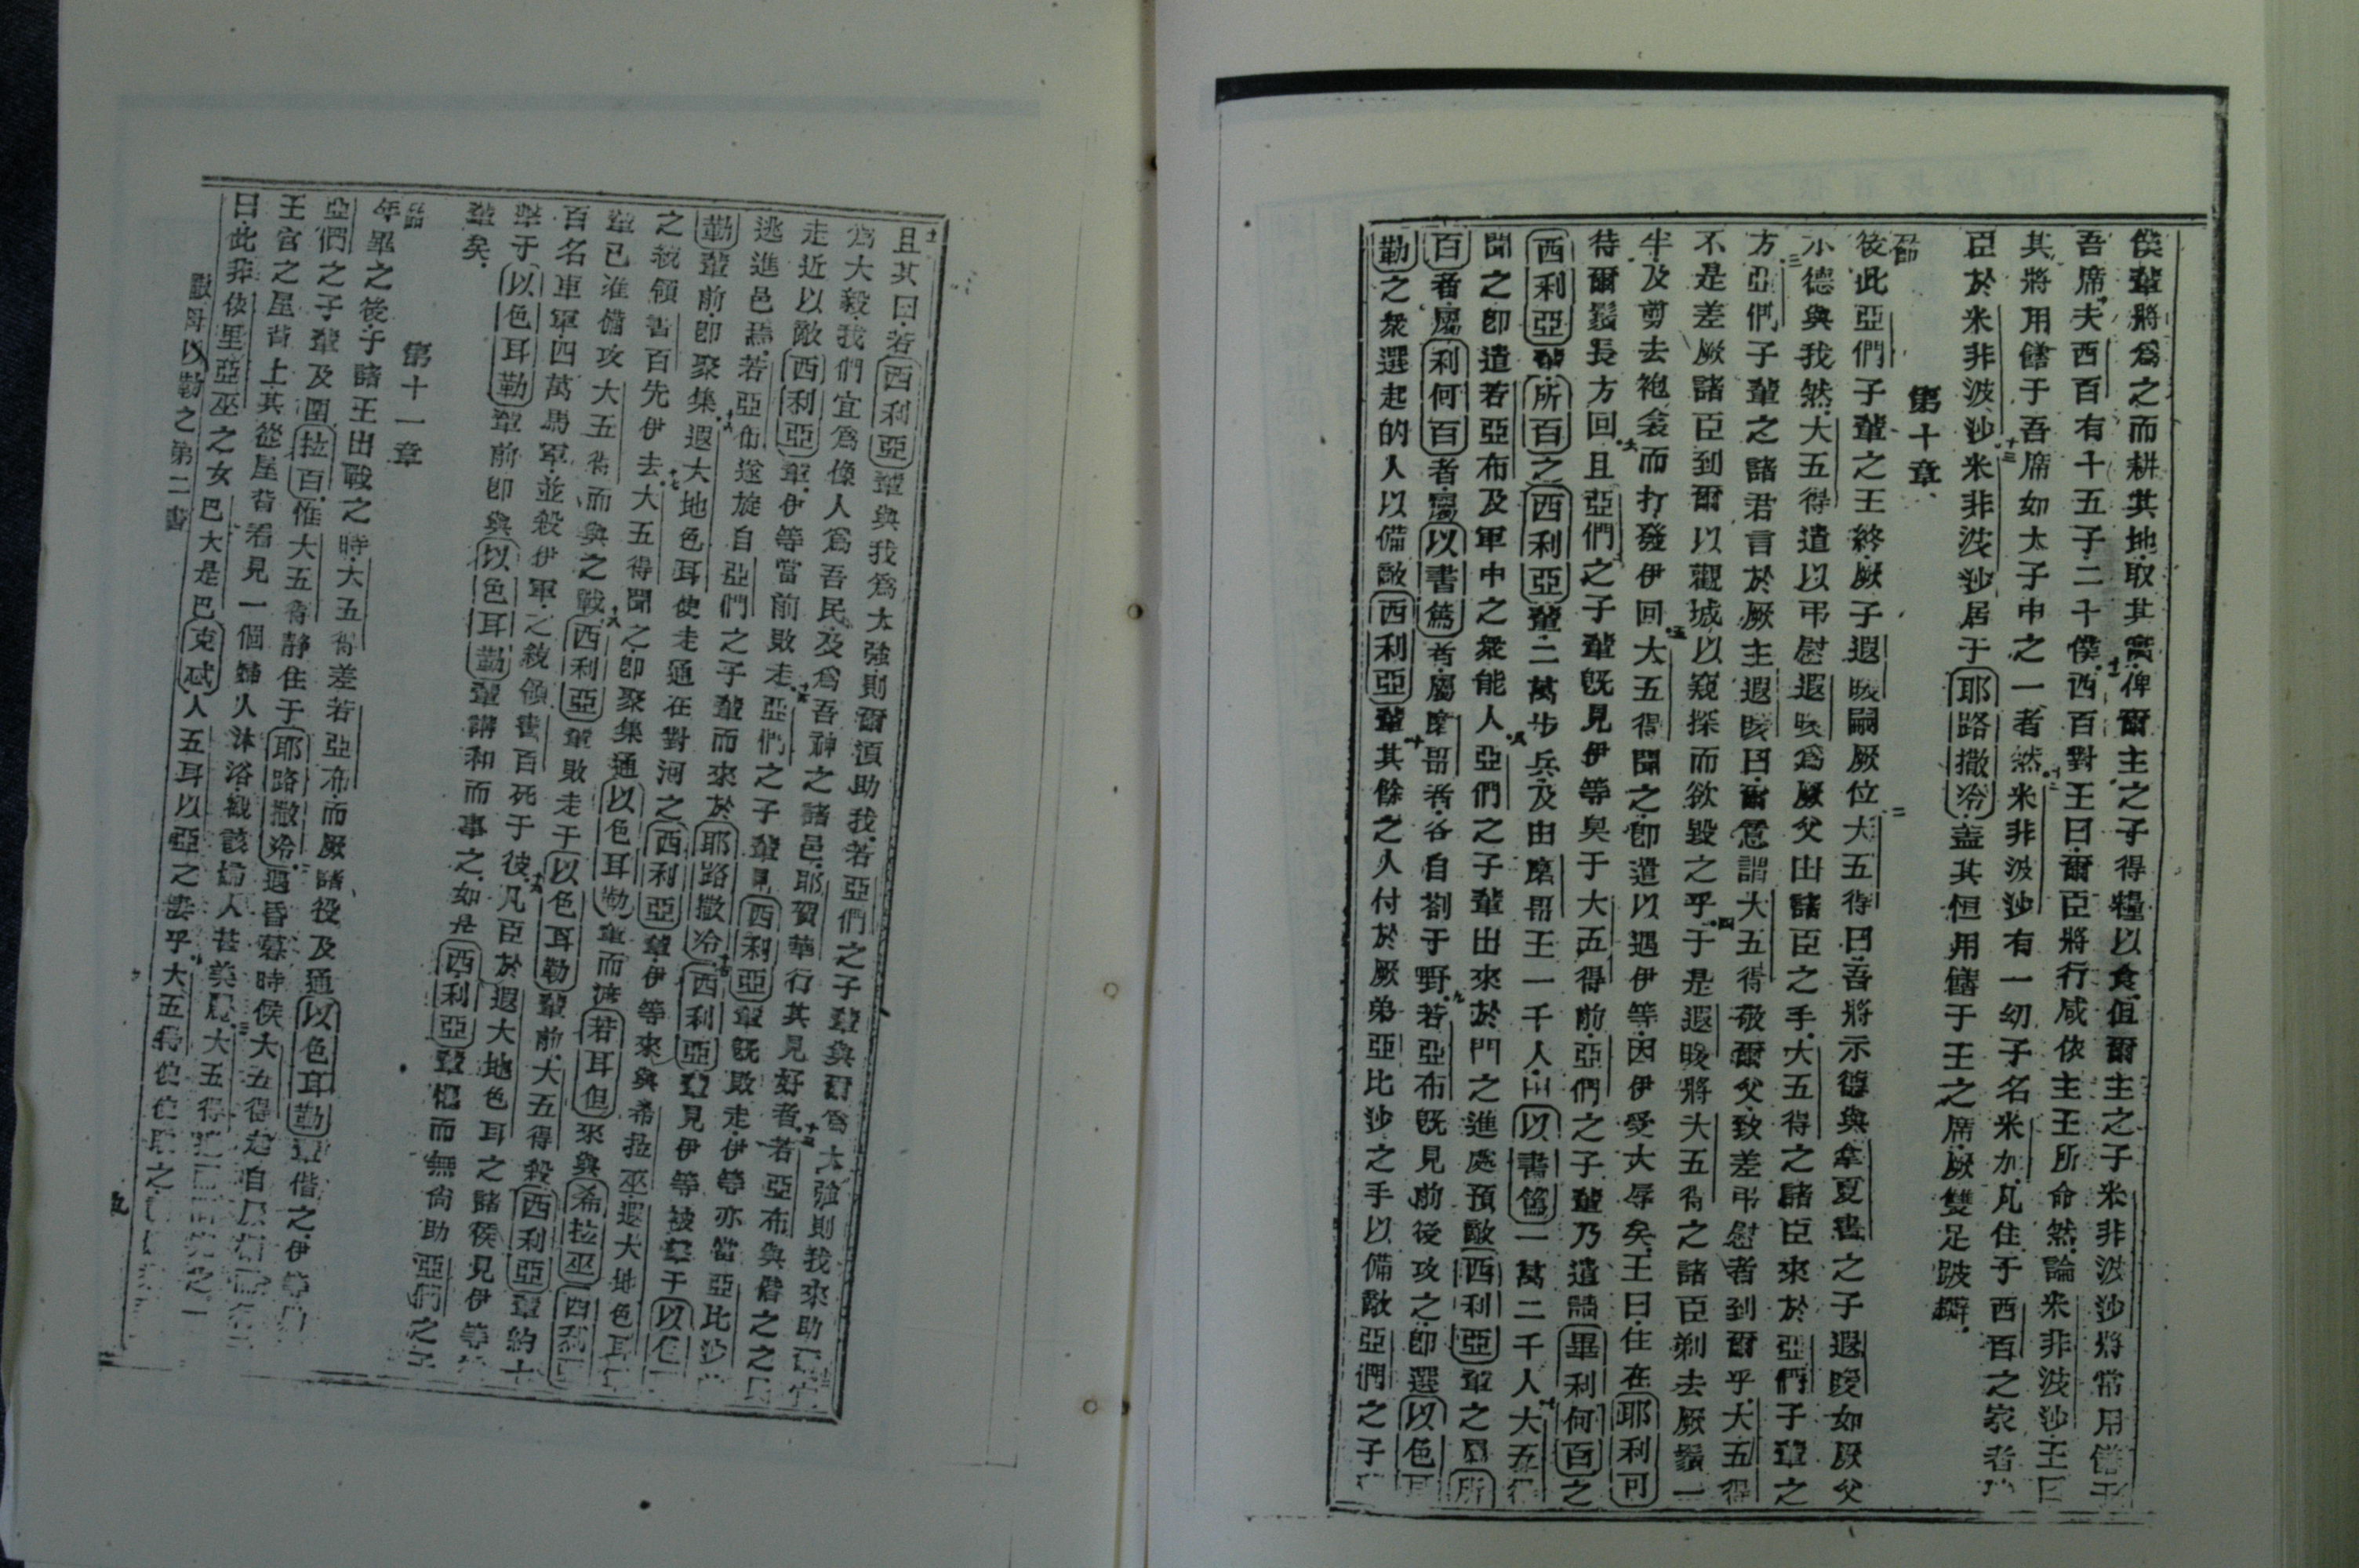 僕輩將爲之而耕其地取其實十一俾爾主之子得糧以食但爾主之子米非波沙將常用饍于
吾席夫西百有十五子二十僕西百對王曰爾臣將行咸依主王所命然論米非波沙王曰
其將用饍于吾席如大子中之一者十二然米非波沙有一幼子名米加凡住于西百之家者
臣於米非波沙十三米非波沙居于耶路撒冷蓋其恒用饍于王之席厥雙足跛
第十章
節
後此亞們子輩之王終厥子遐嗣厥位二大五得曰吾將示德與拿夏書之子遐如厥父
示德與我然大五得遣以弔慰遐爲厥父由諸臣之手大五得之諸臣來於亞們子輩之
方三亞們子輩之諸君言於厥主遐曰爾意謂大五得敬爾父致差弔慰者到爾乎大五得
不是差厥諸臣到爾以觀城以窺探而欲毀之乎四于是遐將大五得之諸臣剃去厥鬚一
半及剪去袍衾而打發伊回五大五得聞之卽遣以遇伊等因伊受大辱矣王曰住在耶利可
待爾鬚長方回六且亞們之子輩旣見伊等臭于大五得前亞們之子輩乃遣請畢利何百之
西利亞輩所百之西利亞輩二萬步兵及由磨哥王一千人由以書篤一萬二千人七大五得
聞之卽遣若亞布及軍中之衆能人八亞們之子輩出來於門之進處預敵西利亞輩之屬所
百者屬利何百者屬以書篤者屬磨哥者各自劄于野九若亞布旣見前後攻之卽選以色耳
勒之衆選起的人以備敵西利亞輩十其餘之人付於厥弟亞比沙之手以備敵亞們之子
十一
且其曰若西利亞輩與我爲大強則爾須助我若亞們之子輩與爾爲大強則我來助
爲大毅我們宜爲像人爲吾民及爲吾神之諸邑耶賀華行其見好者十三若亞布與偕之之民
走近以敵西利亞輩伊等當前敗走十四亞們之子輩見西利亞輩旣敗走伊等亦當亞比沙
逃進邑焉若亞布遂旋自亞們之子輩而來於耶路撒冷十五西利亞輩見伊等被擊于以色
勒輩前卽聚集十六遐大地色耳使走通在對河之西利亞輩伊等來與希拉巫遐大地色耳
之統領書百先伊去十七大五得聞之卽聚集通以色耳勒輩而渡若耳但來與希拉巫西利
輩已准備攻大五得而與之戰十八西利亞輩敗走于以色耳勒輩前大五得殺西利亞輩約七
百名車軍四萬馬軍並殺伊軍之統領書百死于彼十九凡臣於遐大地色耳之諸侯見伊等
擊于以色耳勒輩前卽與以色耳勒輩講和而事之如是西利亞輩怕而無尚助亞們之子
輩矣
第十一章
節
年畢之後于諸王出戰之時大五得差若亞布而厥諸役及通以色耳勒輩偕之伊等
亞們之子輩及圍拉百惟大五得靜住于耶路撒冷二遇昏暮時候大五得起自
王宮之屋背上其從屋背看見一個婦人沐浴觀該婦人甚美三大五得
曰此非依里亞巫之女巴大是巴克忒人五耳以亞之妻乎四大五得使
撒母以勒之第二書
五